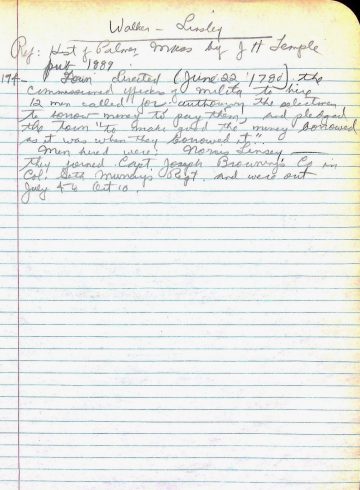 Walker - Linsley
Ref: Hist of Palmer, Mass by J H Temple
pub 1889
194- Town directed (June 22, 1780), the
commissioned officers of militia to hire
12 men called for: authorizing the selectmen
to borrow money to pay them, and pledged
the town "to make good the money borrowed
as it was when they borrowed it".
Men hired were: Norris Linsey
they joined Capt. Joseph Browning's Co in
Col. Seth Murray's Regt. and were out
July 4 to Oct 10.